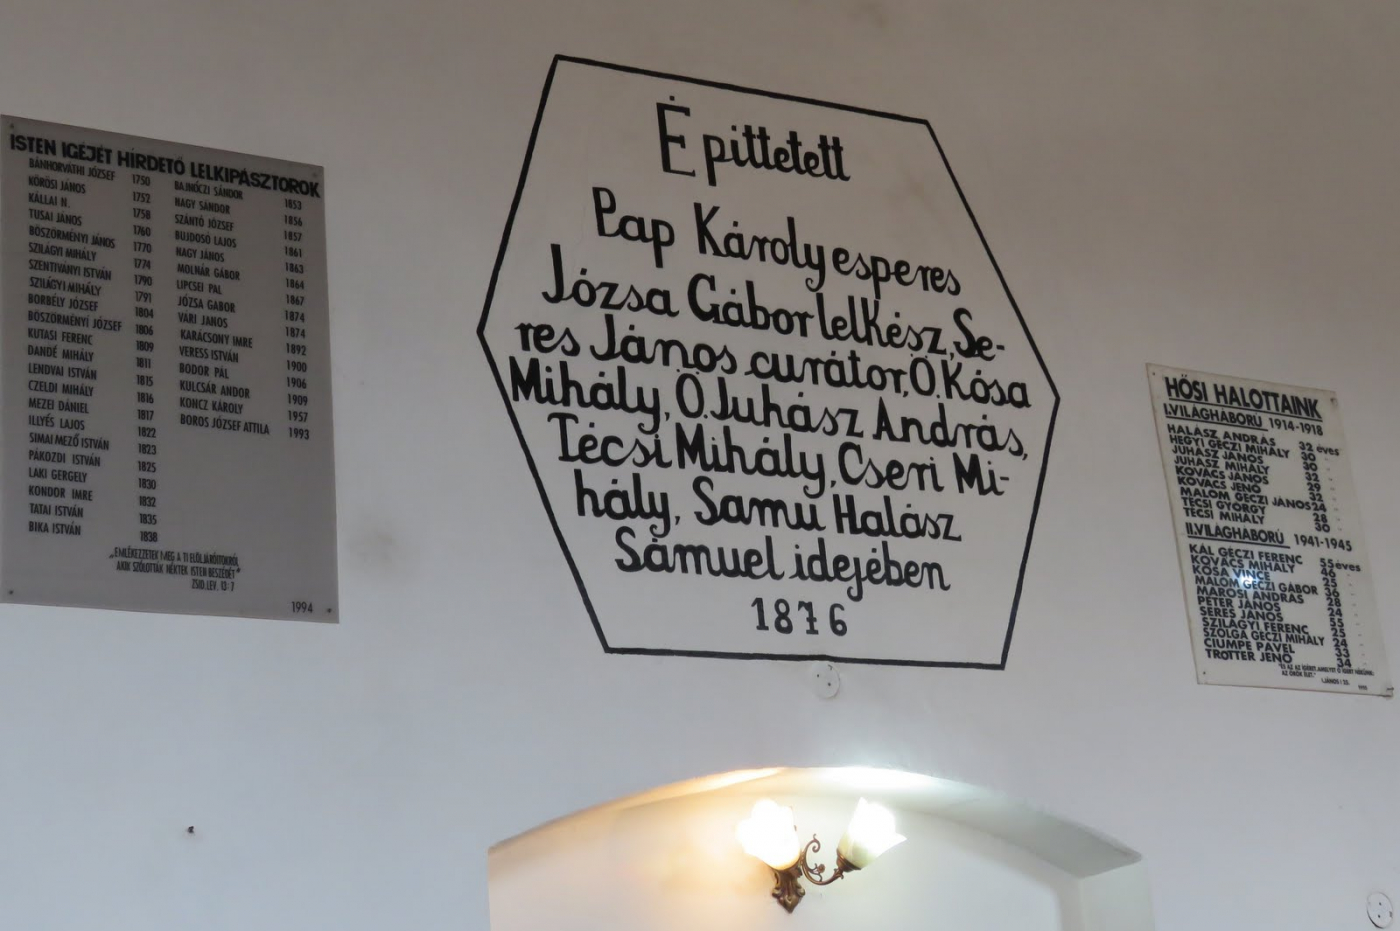 ISTEN IGÉJÉT HIRDETŐ LELKIPÁSZTOROK
BÁNHORVÁTHI JÓZSEF 1750
KŐRÖSI JÁNOS 1752
KÁLLAI N. 1758
TUSAI JÁNOS 1760
BÖSZÖRMÉNYI JÁNOS 1770
SZILÁGYI MIHÁLY 1774
SZENTIVÁNYI ISTVÁN 1790
SZILÁGYI MIHÁLY 1791
BORBÉLY JÓZSEF 1804
BÖSZÖRMÉNYI JÓZSEF 1806
KUTASI FERENC 1809
DANDÉ MIHÁLY 1811
LENDVAI ISTVÁN 1815
CZELDI MIHÁLY 1816
MEZEI DÁNIEL 1817
ILLYÉS LAJOS 1822
SIMAI MEZŐ ISTVÁN 1823
PÁKOZDI ISTVÁN 1825
LAKI GERGELY 1830
KONDOR IMRE 1832
TATAI ISTVÁN 1835
BIKA ISTVÁN 1838
BAJNÓCZI SÁNDOR 1853
NAGY SÁNDOR 1856
SZÁNTÓ JÓZSEF 1857
BUJDOSÓ LAJOS 1861
NAGY JÁNOS 1863
MOLNÁR GÁBOR 1864
LIPCSEI PAL 1867
JÓZSA GABOR 1874
VÁRI JANOS 1874
KARÁCSONY IMRE 1892
VERESS ISTVÁN 1900
BODOR PÁL 1906
KULCSÁR ANDOR 1909
KONCZ KÁROLY 1957
BOROS JÓZSEF ATTILA 1993
„EMLÉKEZZETEK MEG A TI ELÖLJÁRÓITOKRÓL
AKIK SZÓLOTTÁK NÉKTEK ISTEN BESZÉDÉT"
ZSID. LEV. 13:7
1994
Épittetett
Pap Károly esperes
Józsa Gábor lelkész, Se-
res János curátor, Ö. Kósa
Mihály, Ö. Juhász András,
Técsi Mihály, Cseri Mi-
hály, Samu Halász
Sámuel idejében
1876
HŐSI HALOTTAINK
I. VILÁGHÁBORÚ 1914-1918
HALÁSZ ANDRÁS 32 éves
HEGYI GÉCZI MIHÁLY 30
JUHÁSZ JÁNOS 30
JUHÁSZ MIHÁLY 32
KOVÁCS JÁNOS 29
KOVÁCS JENŐ 32
MALOM GÉCZI JÁNOS 24
TÉCSI GYÖRGY 28
TÉCSI MIHÁLY 30
II. VILÁGHÁBORÚ 1941-1945
KÁL GÉCZI FERENC 55 éves
KOVÁCS MIHÁLY 46
KÓSA VINCE 25
MALOM GÉCZI GÁBOR 36
MAROSI ANDRÁS 28
PÉTER JÁNOS 24
SERES JÁNOS 55
SZILÁGYI FERENC 25
SZOLGA GÉCZI MIHÁLY 24
CIUMPE PAVEL 33
TROTTER JENŐ 34
"ÉS AZ AZ IGÉRET, AMELYET Ő IGÉRT NÉKÜNK:
AZ ÖRÖK ÉLET."